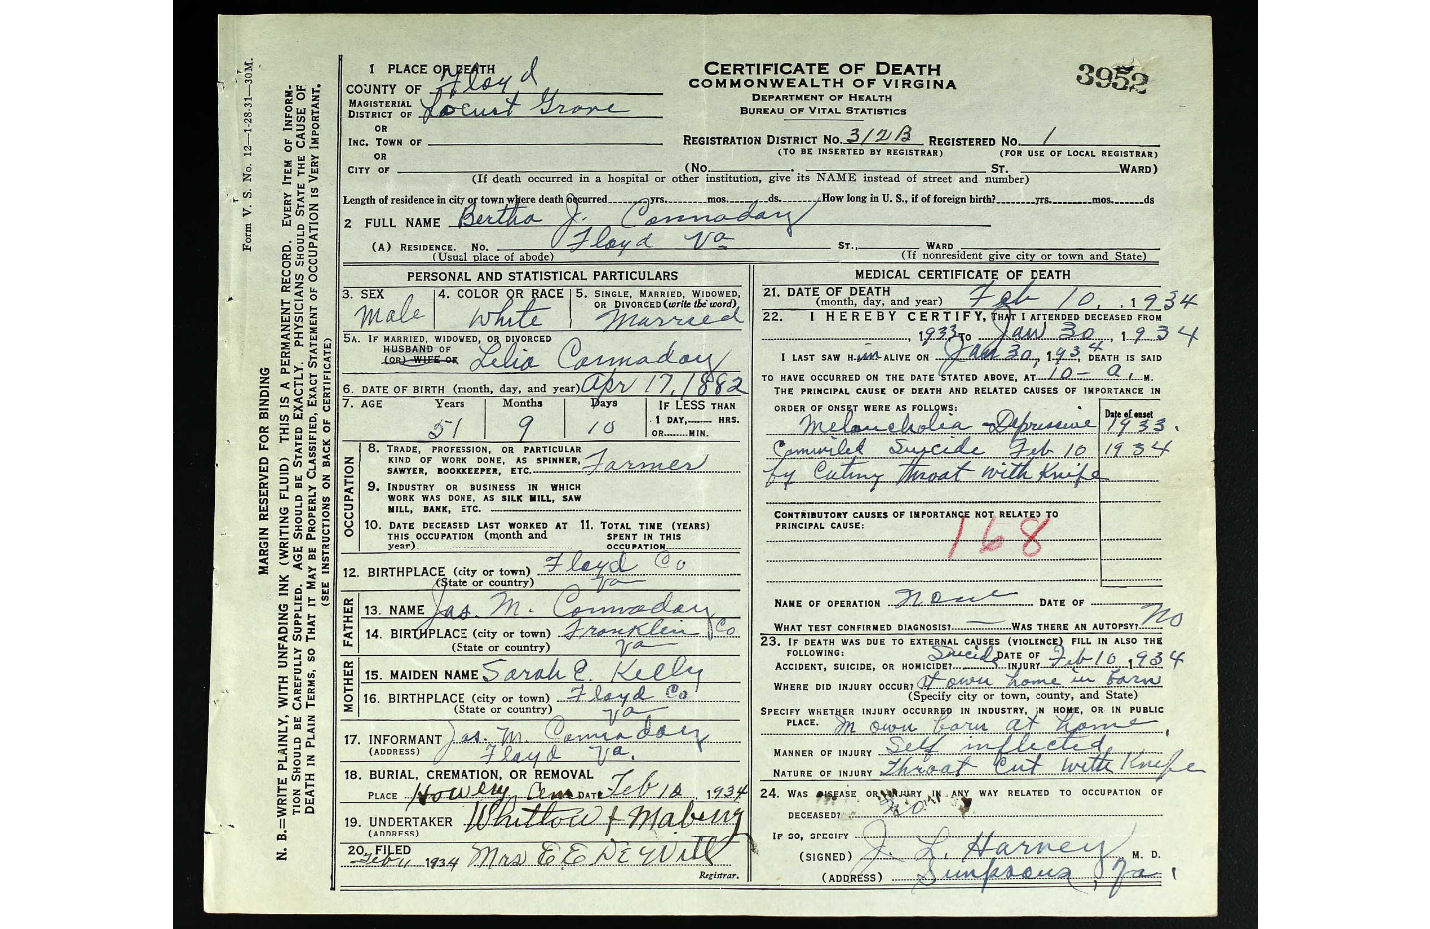 Form V. S. No. 12—1-28-31—30M.
MARGIN RESERVED FOR BINDING
N. B.—WRITE PLAINLY, WITH UNFADING INK (WRITING FLUID) THIS IS A PERMANENT RECORD. EVERY ITEM OF INFORM-
TION SHOULD BE CAREFULLY SUPPLIED. AGE SHOULD BE STATED EXACTLY. PHYSICIANS SHOULD STATE THE CAUSE OF
DEATH IN PLAIN TERMS, SO THAT IT MAY BE PROPERLY CLASSIFIED. EXACT STATEMENT OF OCCUPATION IS VERY IMPORTANT.
(SEE INSTRUCTIONS ON BACK OF CERTIFICATE)
1 PLACE OF DEATH
COUNTY OF Floyd
MAGISTERIAL DISTRICT OF Locust Grove
OR
INC. TOWN OF
OR
CITY OF
CERTIFICATE OF DEATH
COMMONWEALTH OF VIRGINIA
DEPARTMENT OF HEALTH
BUREAU OF VITAL STATISTICS
3952
REGISTRATION DISTRICT NO. 312B REGISTERED NO. 1
(TO BE INSERTED BY REGISTRAR) (FOR USE OF LOCAL REGISTRAR)
(No. ST. WARD)
(If death occurred in a hospital or other institution, give its NAME instead of street and number)
Length of residence in city or town where death occurred yrs. mos. ds. How long in U. S., if of foreign birth? yrs. mos. ds
2 FULL NAME Bertha J. Connaday
(A) RESIDENCE. No. Floyd Va ST., WARD
(Usual place of abode) (If nonresident give city or town and State)
PERSONAL AND STATISTICAL PARTICULARS
3. SEX Male
4. COLOR OR RACE White
5. SINGLE, MARRIED, WIDOWED, OR DIVORCED (write the word) Married
5A. IF MARRIED, WIDOWED, OR DIVORCED
HUSBAND OF
(OR) WIFE OF Lelia Connaday
6. DATE OF BIRTH (month, day, and year) Apr 17, 1882
7. AGE Years Months Days IF LESS THAN
51 9 10 1 DAY, HRS.
OR MIN.
OCCUPATION
8. TRADE, PROFESSION, OR PARTICULAR
KIND OF WORK DONE, AS SPINNER,
SAWYER, BOOKKEEPER, ETC. Farmer
9. INDUSTRY OR BUSINESS IN WHICH
WORK WAS DONE, AS SILK MILL, SAW
MILL, BANK, ETC.
10. DATE DECEASED LAST WORKED AT THIS OCCUPATION (month and year)
11. TOTAL TIME (YEARS) SPENT IN THIS OCCUPATION
12. BIRTHPLACE (city or town) Floyd Co
(State or country) Va
FATHER
13. NAME Jas. M. Connaday
14. BIRTHPLACE (city or town) Franklin Co
(State or country) Va
MOTHER
15. MAIDEN NAME Sarah E. Kelly
16. BIRTHPLACE (city or town) Floyd Co
(State or country) Va
17. INFORMANT Jas. M. Connaday
(ADDRESS) Floyd Va.
18. BURIAL, CREMATION, OR REMOVAL
PLACE Howery Cem DATE Feb 12, 1934
19. UNDERTAKER Whitlow &
(ADDRESS)
20. FILED Feb 1934 Mrs E E
Registrar.
MEDICAL CERTIFICATE OF DEATH
21. DATE OF DEATH
(month, day, and year) Feb 10, 1934
22. I HEREBY CERTIFY, THAT I ATTENDED DECEASED FROM
1933 TO Jan 30, 1934
I LAST SAW H im ALIVE ON Jan 30, 1934 DEATH IS SAID
TO HAVE OCCURRED ON THE DATE STATED ABOVE, AT 10- a. M.
THE PRINCIPAL CAUSE OF DEATH AND RELATED CAUSES OF IMPORTANCE IN
ORDER OF ONSET WERE AS FOLLOWS: Date of onset
Melancholia Depressive 1933.
Commited Suicide Feb 10 1934
by Cuting throat with Knife
CONTRIBUTORY CAUSES OF IMPORTANCE NOT RELATED TO
PRINCIPAL CAUSE:
168
NAME OF OPERATION none DATE OF
WHAT TEST CONFIRMED DIAGNOSIS? — WAS THERE AN AUTOPSY? No
23. IF DEATH WAS DUE TO EXTERNAL CAUSES (VIOLENCE) FILL IN ALSO THE
FOLLOWING:
ACCIDENT, SUICIDE, OR HOMICIDE? Suicide DATE OF INJURY Feb 10, 1934
WHERE DID INJURY OCCUR? At own home in barn
(Specify city or town, county, and State)
SPECIFY WHETHER INJURY OCCURRED IN INDUSTRY, IN HOME, OR IN PUBLIC
PLACE. In own barn at home
MANNER OF INJURY Self inflicted
NATURE OF INJURY Throat Cut with Knife
24. WAS DISEASE OR INJURY IN ANY WAY RELATED TO OCCUPATION OF
DECEASED? no
IF SO, SPECIFY
(SIGNED) J. L. Harvey M. D.
(ADDRESS) Simpsons, Va.